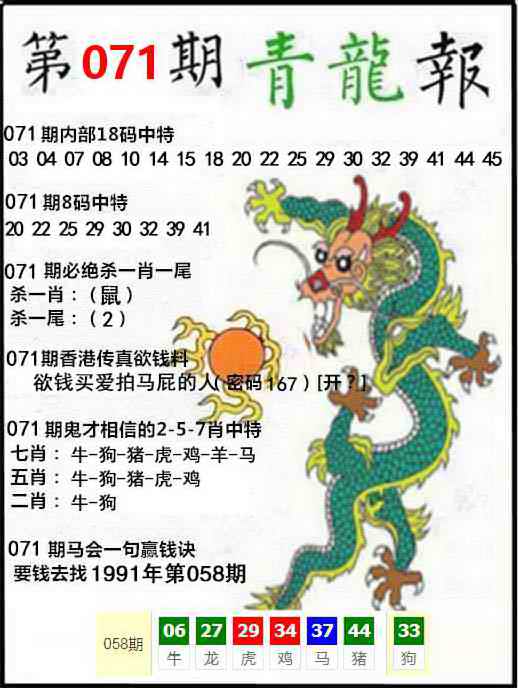 第071期青龍報
071期内部18码中特
03 04 07 08 10 14 15 18 20 22 25 29 30 32 39 41 44 45
071期8码中特
20 22 25 29 30 32 39 41
071 期必绝杀一肖一尾
杀一肖：（鼠）
杀一尾：（2）
071期香港传真欲钱料
欲钱买爱拍马屁的人(密码167）[开？]
071期鬼才相信的2-5-7肖中特
七肖：牛-狗-猪-虎-鸡-羊-马
五肖：牛-狗-猪-虎-鸡
二肖：牛-狗
071 期马会一句赢钱诀
要钱去找1991年第058期
058期 06 27 29 34 37 44 33
牛 龙 虎 鸡 马 猪 狗